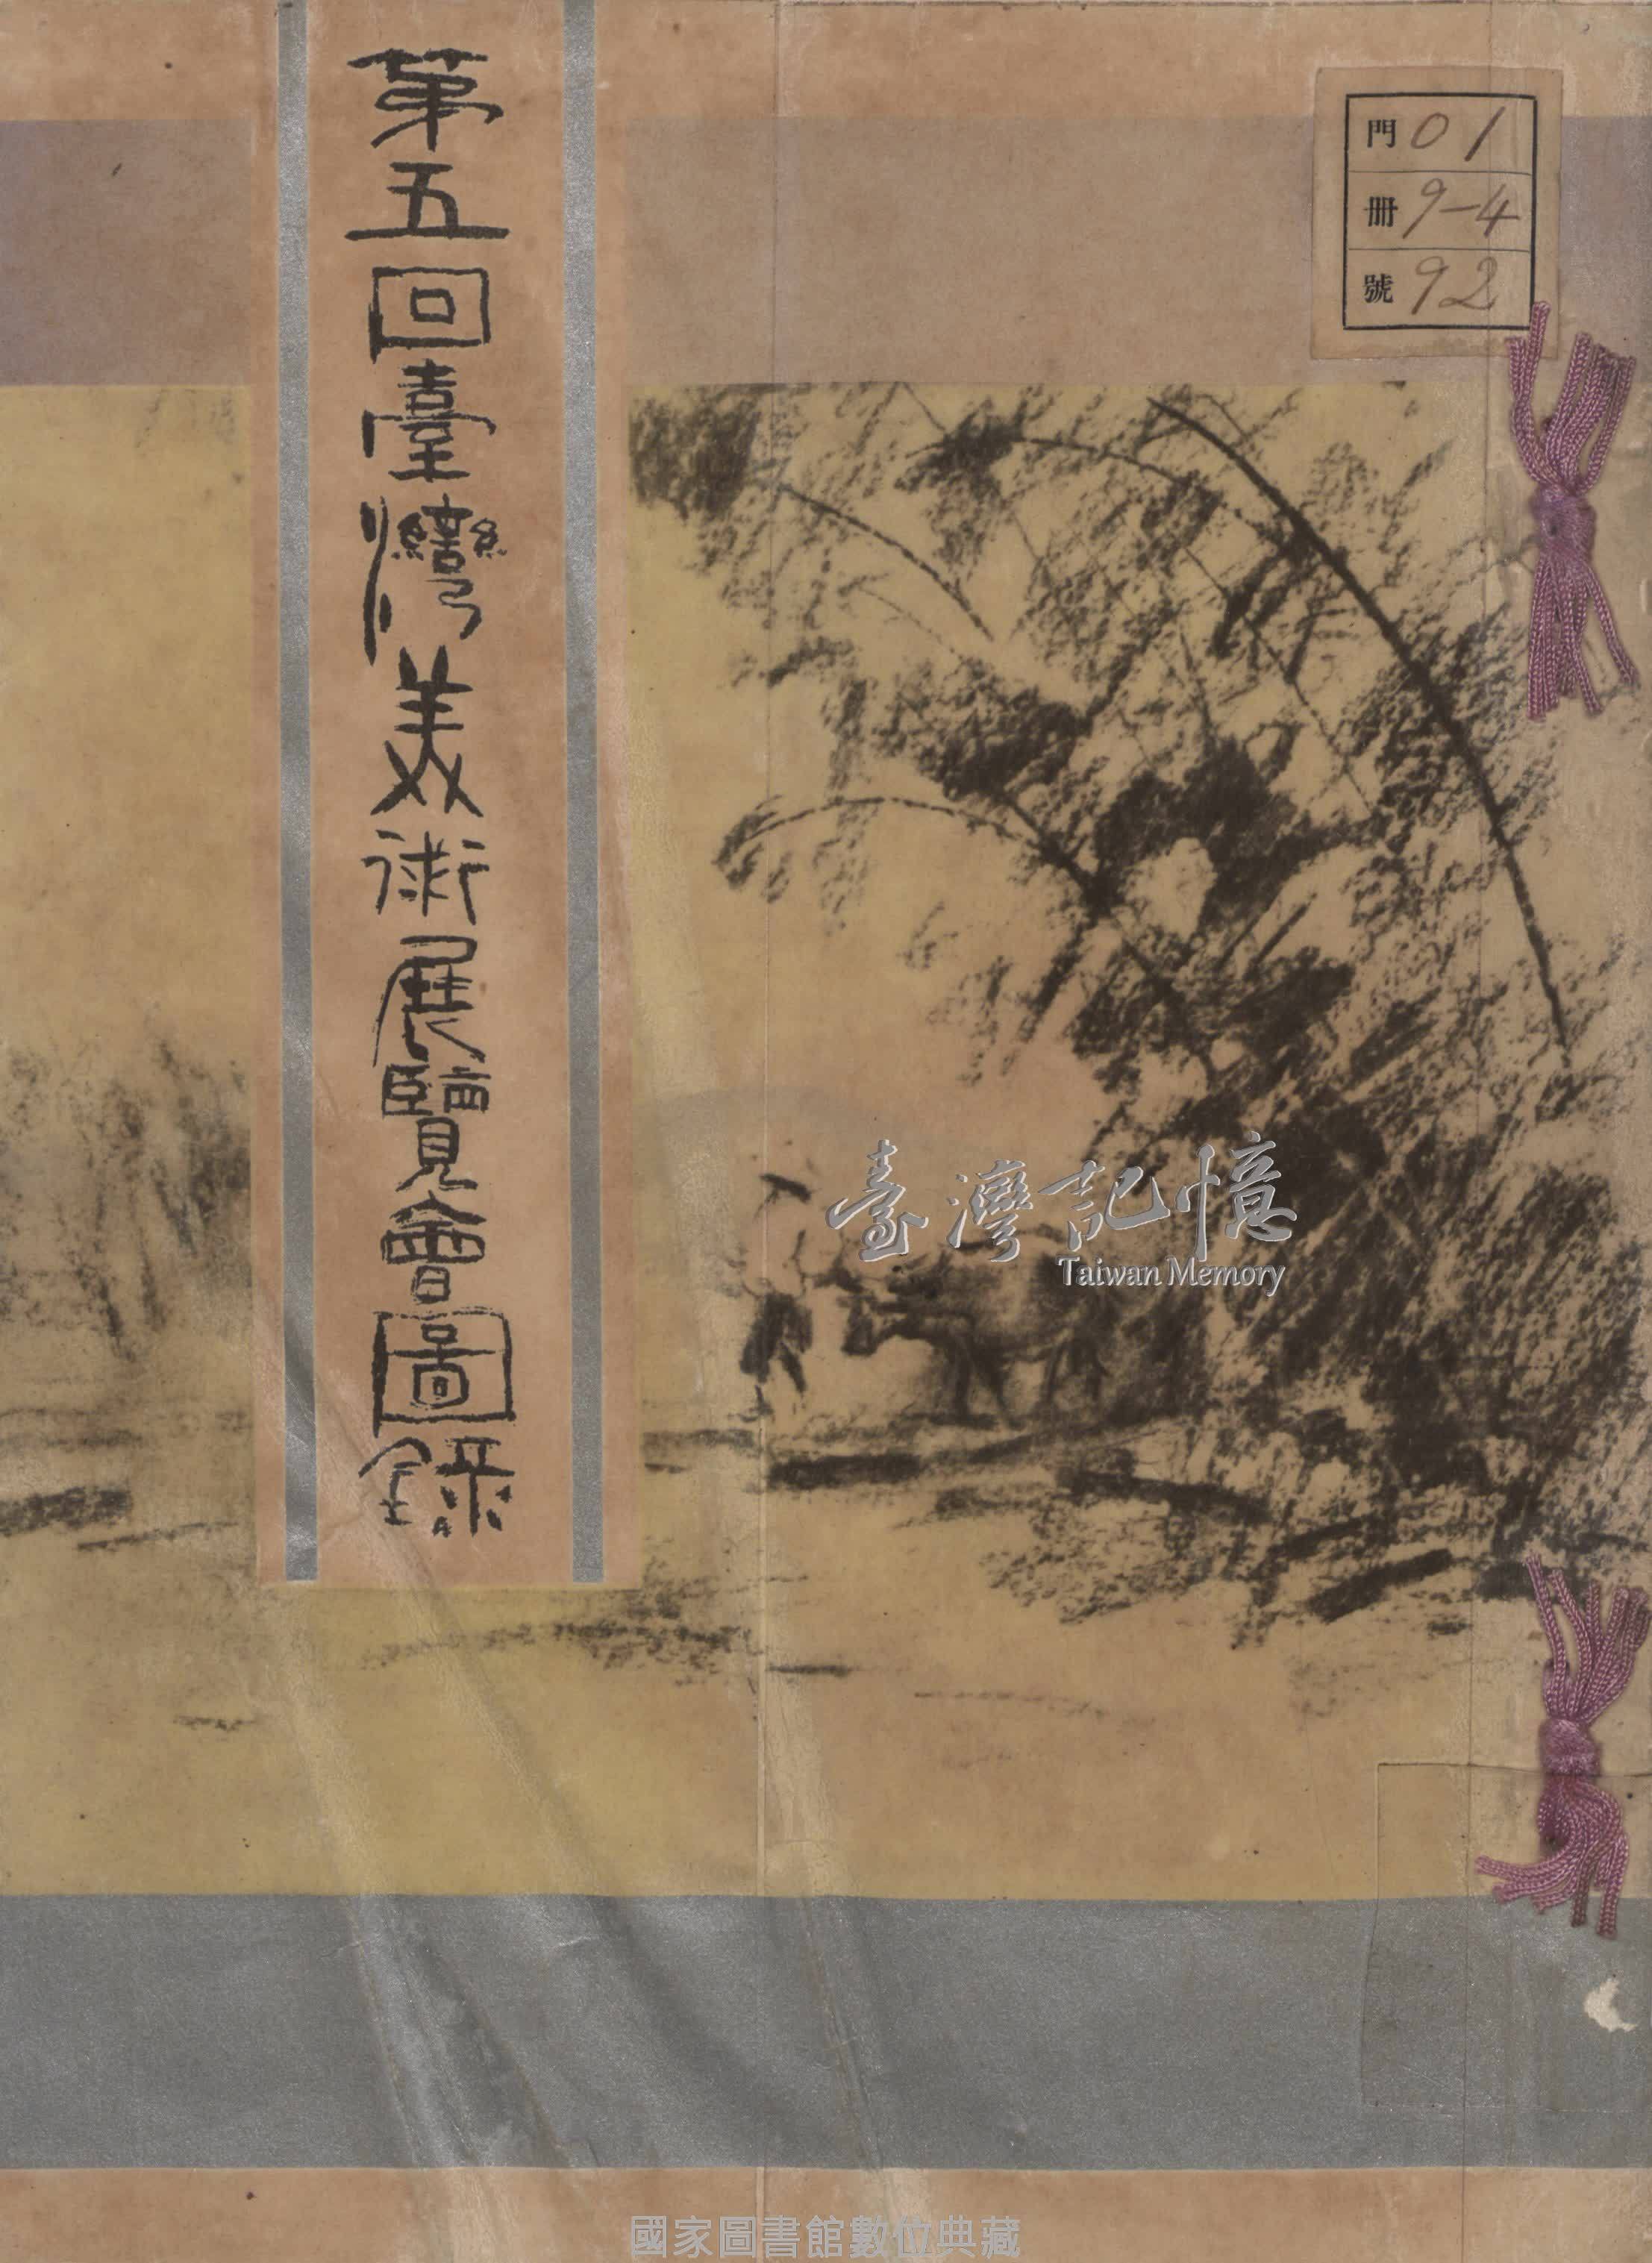 第五回臺灣美術展覽會圖錄
門 01
冊 9-4
號 92
臺灣記憶
Taiwan Memory
國家圖書館數位典藏